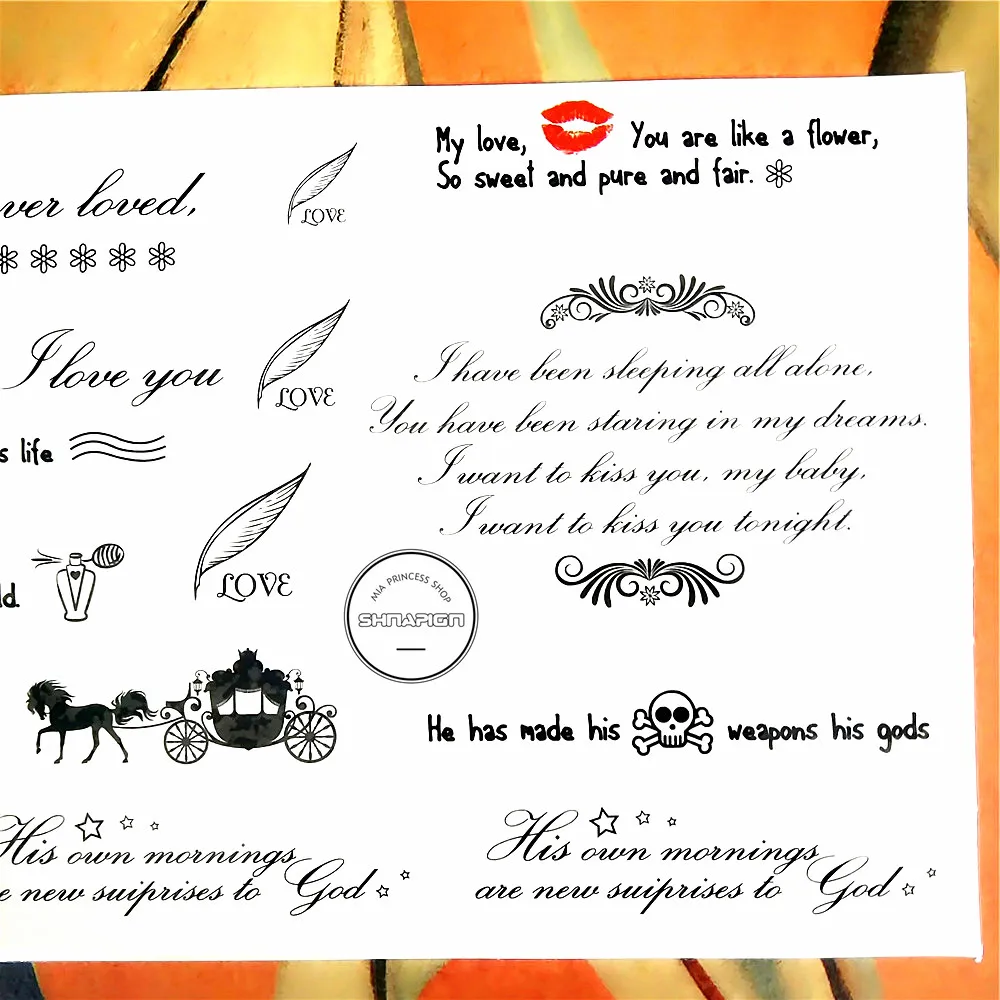 ver loved,
LOVE
I love you
LOVE
s life
LOVE
ld.
His own mornings
e new suiprises to God
My love, You are like a flower,
So sweet and pure and fair.
I have been sleeping all alone,
You have been staring in my dreams.
I want to kiss you, my baby,
I want to kiss you tonight.
MIA PRINCESS SHOP
SHNAPIGN
He has made his weapons his gods
His own mornings
are new suiprises to God